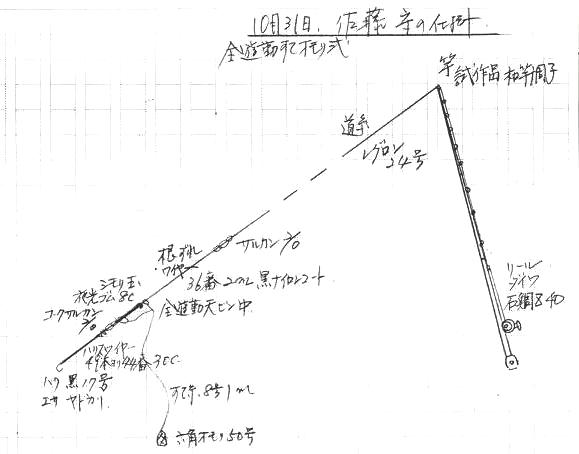 10月31日. 佐藤 守の仕掛
全遊動すてオモリ式
竿 試作品 和竿調子
道糸
レグロン
24号
サルカン 2/0
根ずれ
ワイヤー
36番 2m 黒ナイロンコート
シモリ玉
夜光ゴム 8c
コークサルカン
2/0
全遊動天ビン 中
ハリスワイヤー
49本ヨリ 44番 35C
ハリ 黒 17号
エサ ヤドカリ
すて糸 8号 1m
六角オモリ 50号
リール
ダイワ
石鯛Z 40